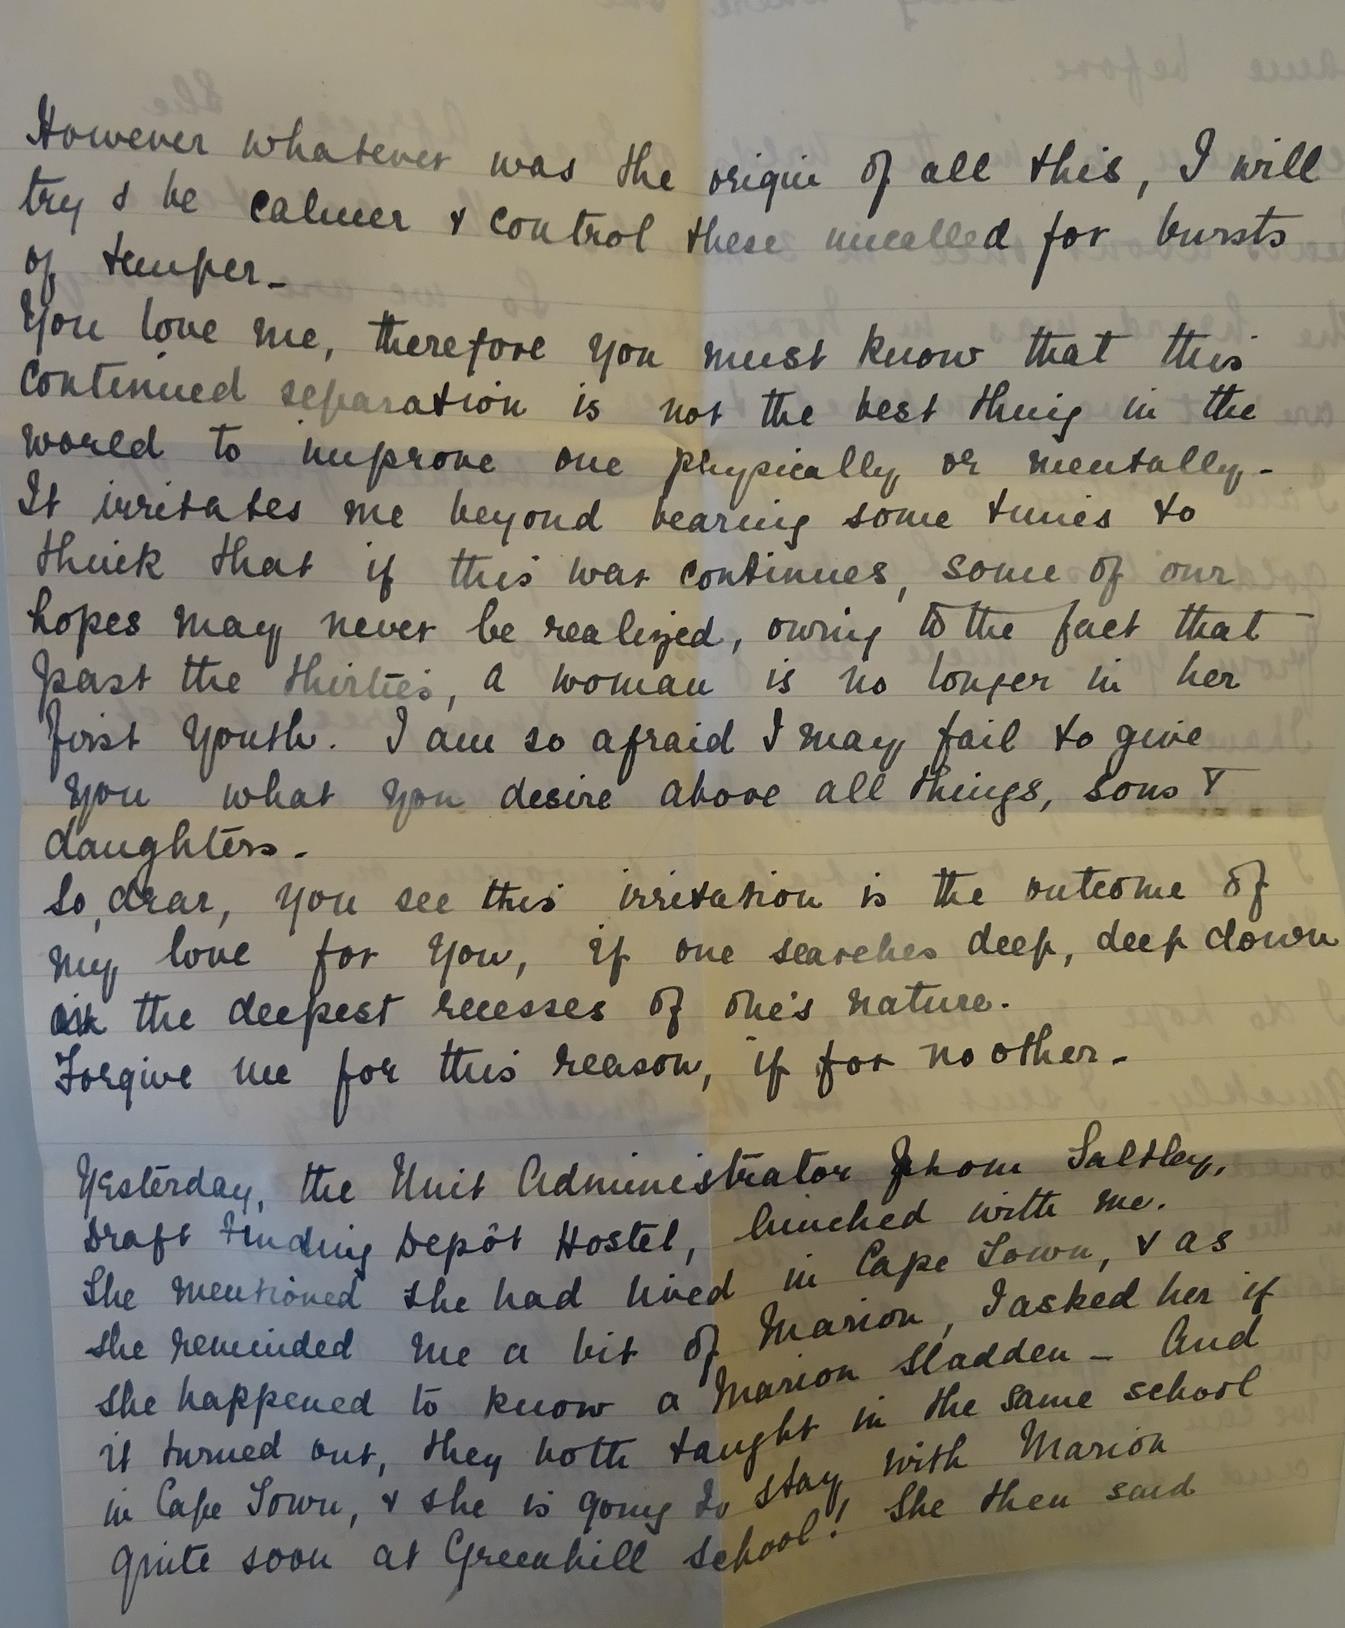 However whatever was the origin of all this, I will
try & be calmer & control these uncalled for bursts
of temper_
You love me, therefore you must know that this
continued separation is not the best thing in the
world to improve one physically or mentally_
It irritates me beyond bearing some times to
think that if this war continues, some of our
hopes may never be realized, owing to the fact that
past the thirties, a woman is no longer in her
first youth. I am so afraid I may fail to give
you what you desire above all things, sons &
daughters.
So, dear, you see this irritation is the outcome of
my love for you, if one searches deep, deep down
in the deepest recesses of one's nature.
Forgive me for this reason, if for no other_
Yesterday, the Unit Administrator from Saltley,
Draft Finding Depôt Hostel, lunched with me.
She mentioned she had lived in Cape Town, & as
she reminded me a bit of Marion, I asked her if
she happened to know a Marion Sladden_ And
it turned out, they both taught in the same school
in Cape Town, & she is going to stay with Marion
quite soon at Greenhill school! She then said